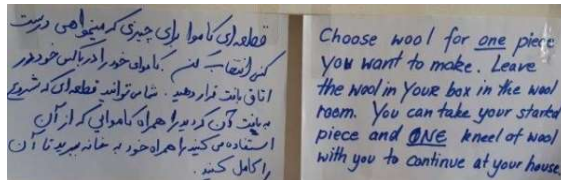 قطعه‌ای کاموا برای چیزی که میخواهی درست
کنی انتخاب کن. کاموای خود را در باکس خود در
اتاق بافت قرار دهید. شما می‌توانید قطعه‌ای که شروع
به بافت آن کردید را همراه کاموایی که از آن
استفاده می کنید را همراه خود به خانه ببرید تا آن
را کامل کنید.
Choose wool for one piece
you want to make. Leave
the wool in your box in the wool
room. You can take your started
piece and ONE kneel of wool
with you to continue at your house.